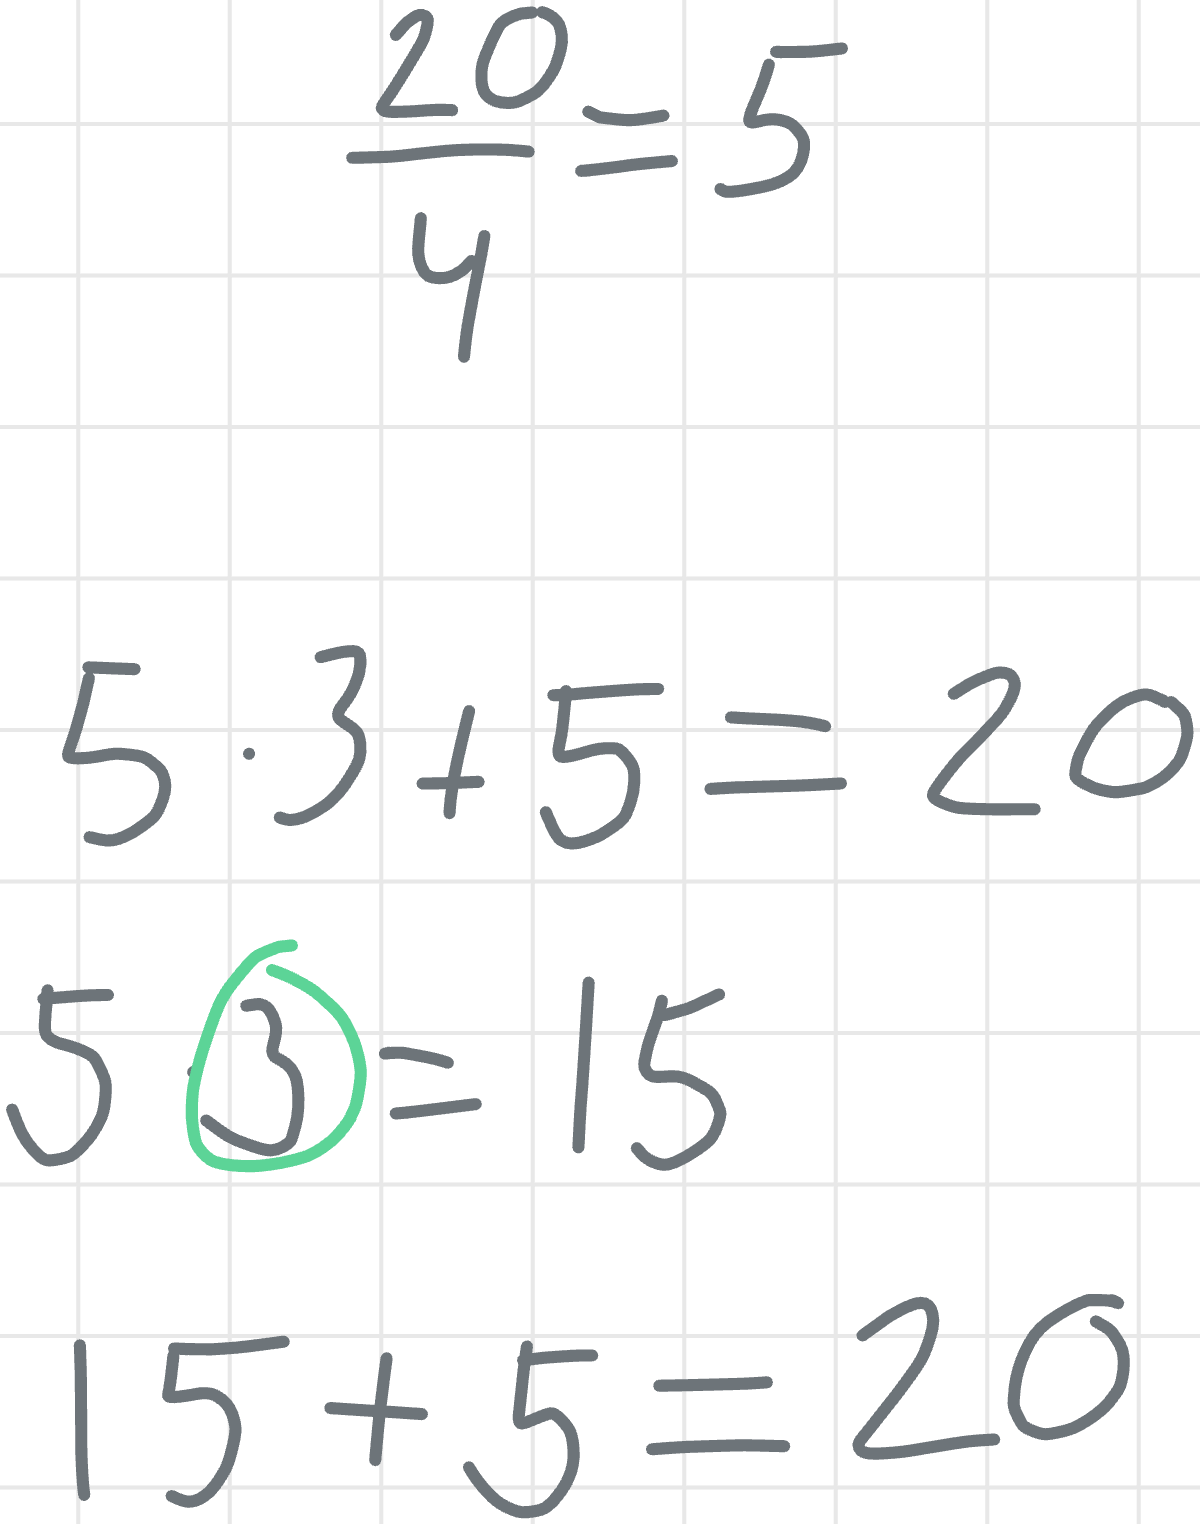 20/4 = 5
5 · 3 + 5 = 20
5 · 3 = 15
15 + 5 = 20